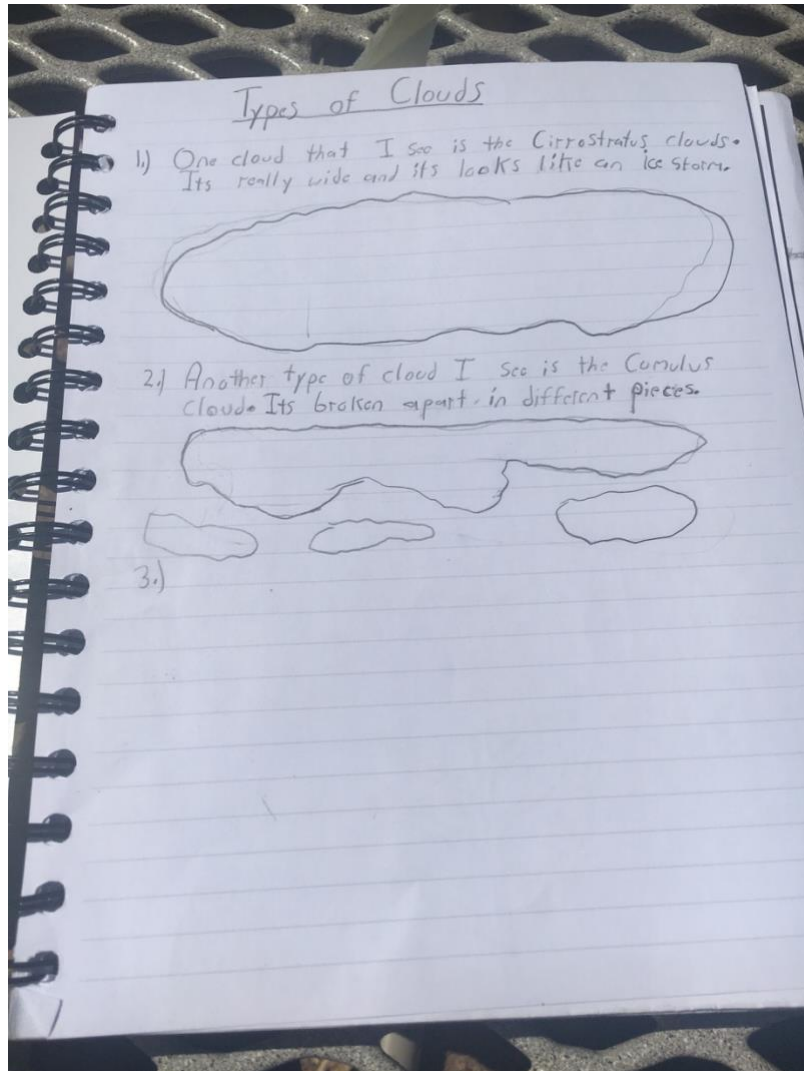 Types of Clouds
1.) One cloud that I see is the Cirrostratus clouds.
Its really wide and its looks like an ice storm.
2.) Another type of cloud I see is the Comulus
cloud. Its broken apart in different pieces.
3.)